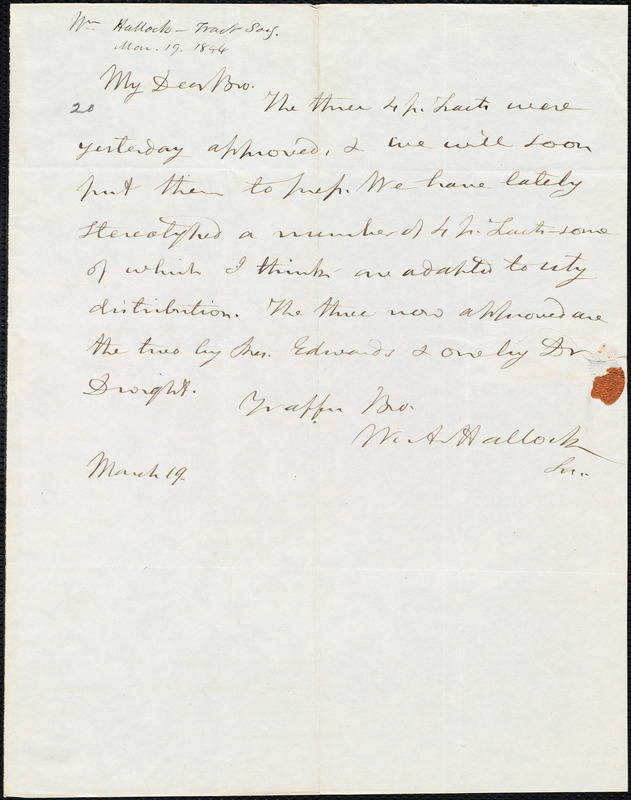 Wm Hallock – Tract Socy.
Mar. 19. 1844
My Dear Bro.
20
The three 4 p. Tracts were
yesterday approved, & we will soon
put them to press. We have lately
stereotyped a number of 4 p. Tracts–some
of which I think are adapted to city
distribution. The three now approved are
the two by Pres. Edwards & one by Dr
Dwight.
Yr affn Bro.
Wm. A. Hallock
March 19.